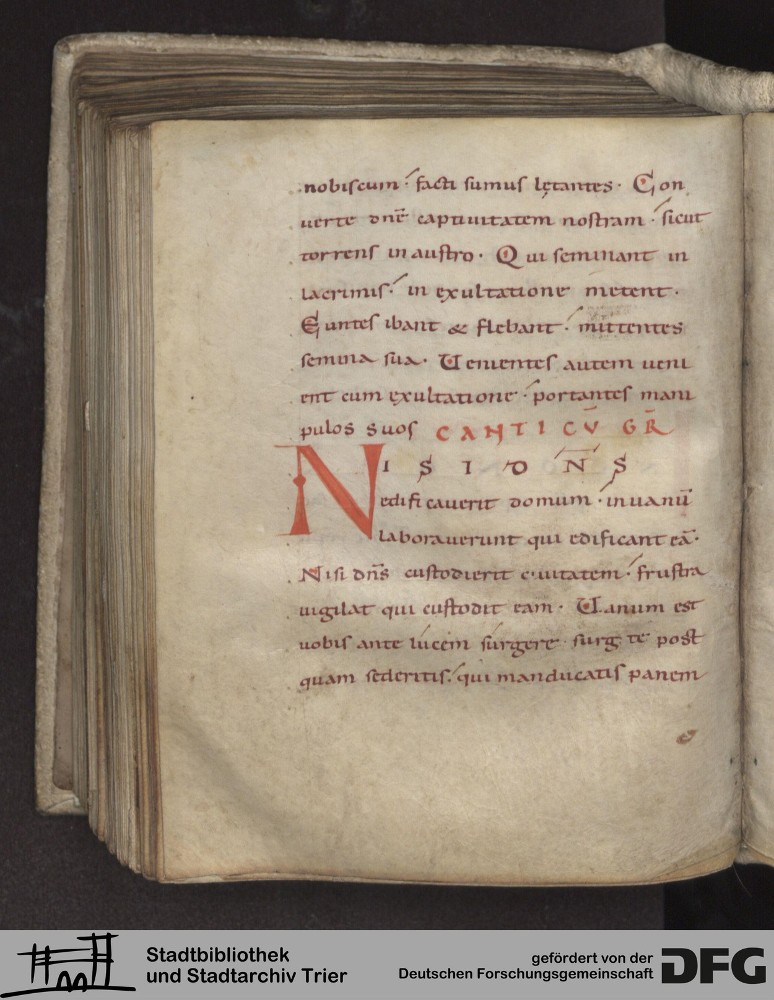 nobiscum · facti sumus lętantes · Con
uerte dn̄e captiuitatem nostram · sicut
torrens in austro · Qui seminant in
lacrimis · in exultatione metent ·
Euntes ibant & flebant · mittentes
semina sua · Uenientes autem ueni
ent cum exultatione · portantes mani
pulos suos CANTICŪ GR̄
NISI DN̄S
edificauerit domum · inuanū
laborauerunt qui edificant eā ·
Nisi dn̄s custodierit ciuitatem · frustra
uigilat qui custodit eam · Uanum est
uobis ante lucem surgere · surgite post
quam sederitis · qui manducatis panem
Stadtbibliothek
und Stadtarchiv Trier
gefördert von der
Deutschen Forschungsgemeinschaft
DFG